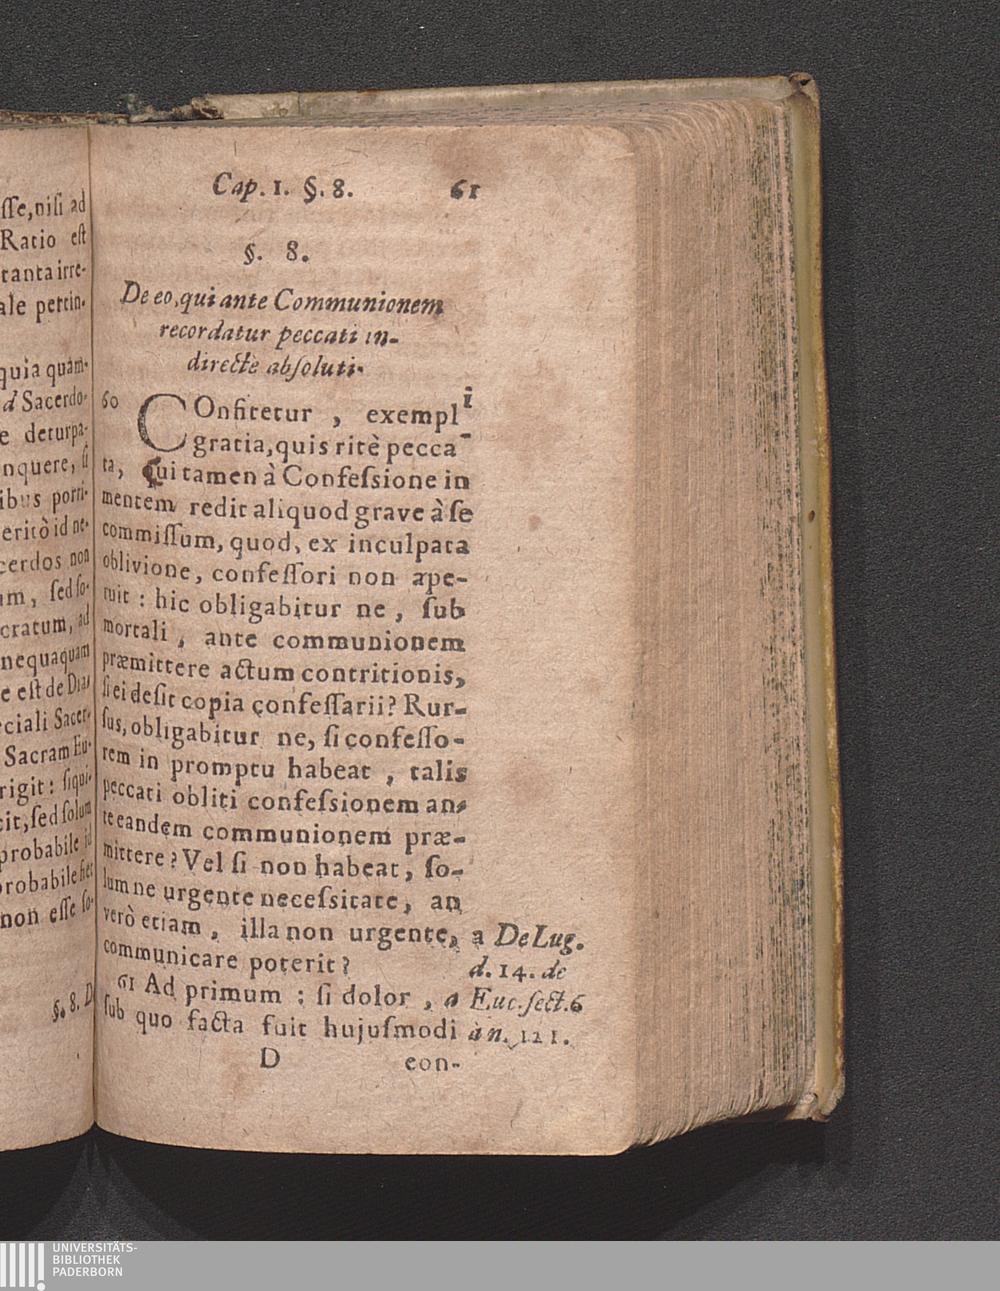 ſſe, niſi ad
Ratio eſt
tanta irre-
ale pertin-
quia quam-
d Sacerdo-
e deturpa-
nquere, ſi
ibus porri-
eritò id ne-
cerdos non
um, ſed ſo-
cratum, ad
nequaquam
e eſt de Dia-
eciali Sacer-
Sacram Eu-
rigit: ſiqui-
cit, ſed ſolum
probabile id
probabile fiet
non eſſe ſo-
§. 8. D
Cap. 1. §. 8. 61
§. 8.
De eo, qui ante Communionem
recordatur peccati in-
directè abſoluti.
60 COnfitetur, exempli
gratia, quis ritè pecca-
ta, qui tamen à Confeſsione in
mentem redit aliquod grave à ſe
commiſſum, quod, ex inculpata
oblivione, confeſſori non ape-
ruit: hic obligabitur ne, ſub
mortali, ante communionem
præmittere actum contritionis,
ſi ei deſit copia confeſſarii? Rur-
ſus, obligabitur ne, ſi confeſſo-
rem in promptu habeat, talis
peccati obliti confeſsionem an-
te eandem communionem præ-
mittere? Vel ſi non habeat, ſo-
lum ne urgente neceſsitate, an
verò etiam, illa non urgente,
communicare poterit?
61 Ad primum: ſi dolor, a
ſub quo facta fuit hujuſmodi
D con-
a De Lug.
d. 14. de
Euc. ſect. 6
àn. 121.
UNIVERSITÄTS-
BIBLIOTHEK
PADERBORN